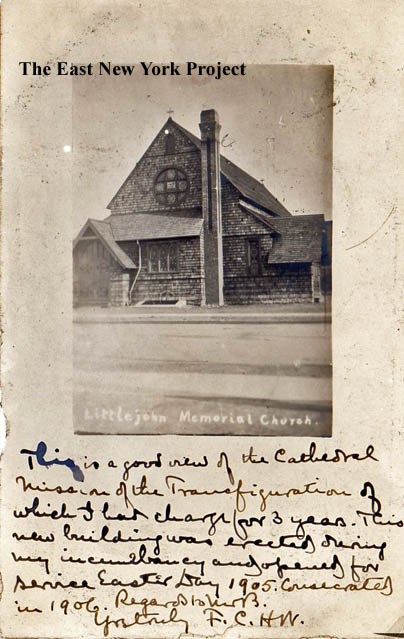 The East New York Project
Littlejohn Memorial Church.
This is a good view of the Cathedral
Mission of the Transfiguration of
which I had charge for 3 years. This
new building was erected during
my incumbency and opened for
service Easter Day 1905. Consecrated
in 1906. Regards to Mr B.
Yrs truly F. C. H. W.